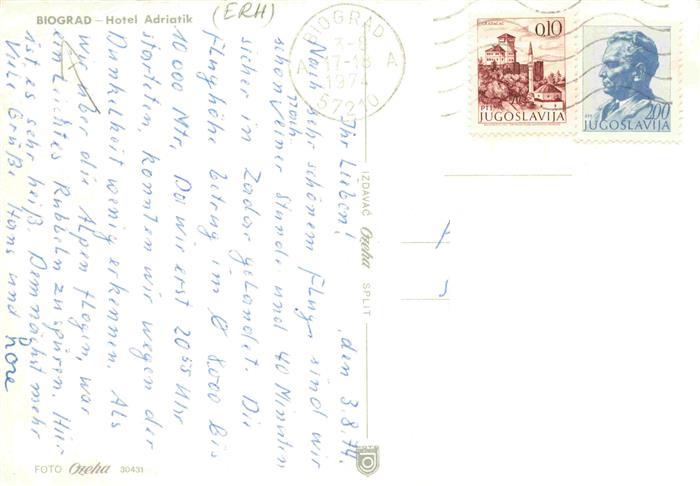 BIOGRAD - Hotel Adriatik
(ERH)
Ihr Lieben! , den 3.8.74.
Nach sehr schönem Fluge sind wir
nach
schon einer Stunde und 40 Minuten
sicher in Zadar gelandet. Die
Flughöhe betrug im Ø 8.000 bis
10 000 Mtr. Da wir erst 20⁵⁵ Uhr
starteten, konnten wir wegen der
Dunkelheit wenig erkennen. Als
wir über die Alpen flogen, war
ein leichtes Rubbeln zu spüren. Hier
ist es sehr heiß. Demnächst mehr
Viele Grüße Hans und Lore
FOTO Ozeha 30431
IZDAVAČ Ozeha SPLIT
BIOGRAD
A A
17-18
1974
57210
0,10
PTT
JUGOSLAVIJA
2,00
PTT
JUGOSLAVIJA